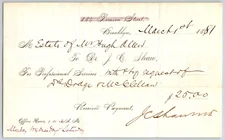 Brooklyn, March 1st 1881
M Estate of Mr Hugh Allen
To Dr. J. C. Shaw,
For Professional Services with & by request of
Drs Dodge & McClellan
$25.00
Received Payment,
J C Shaw M D
Office Hours,